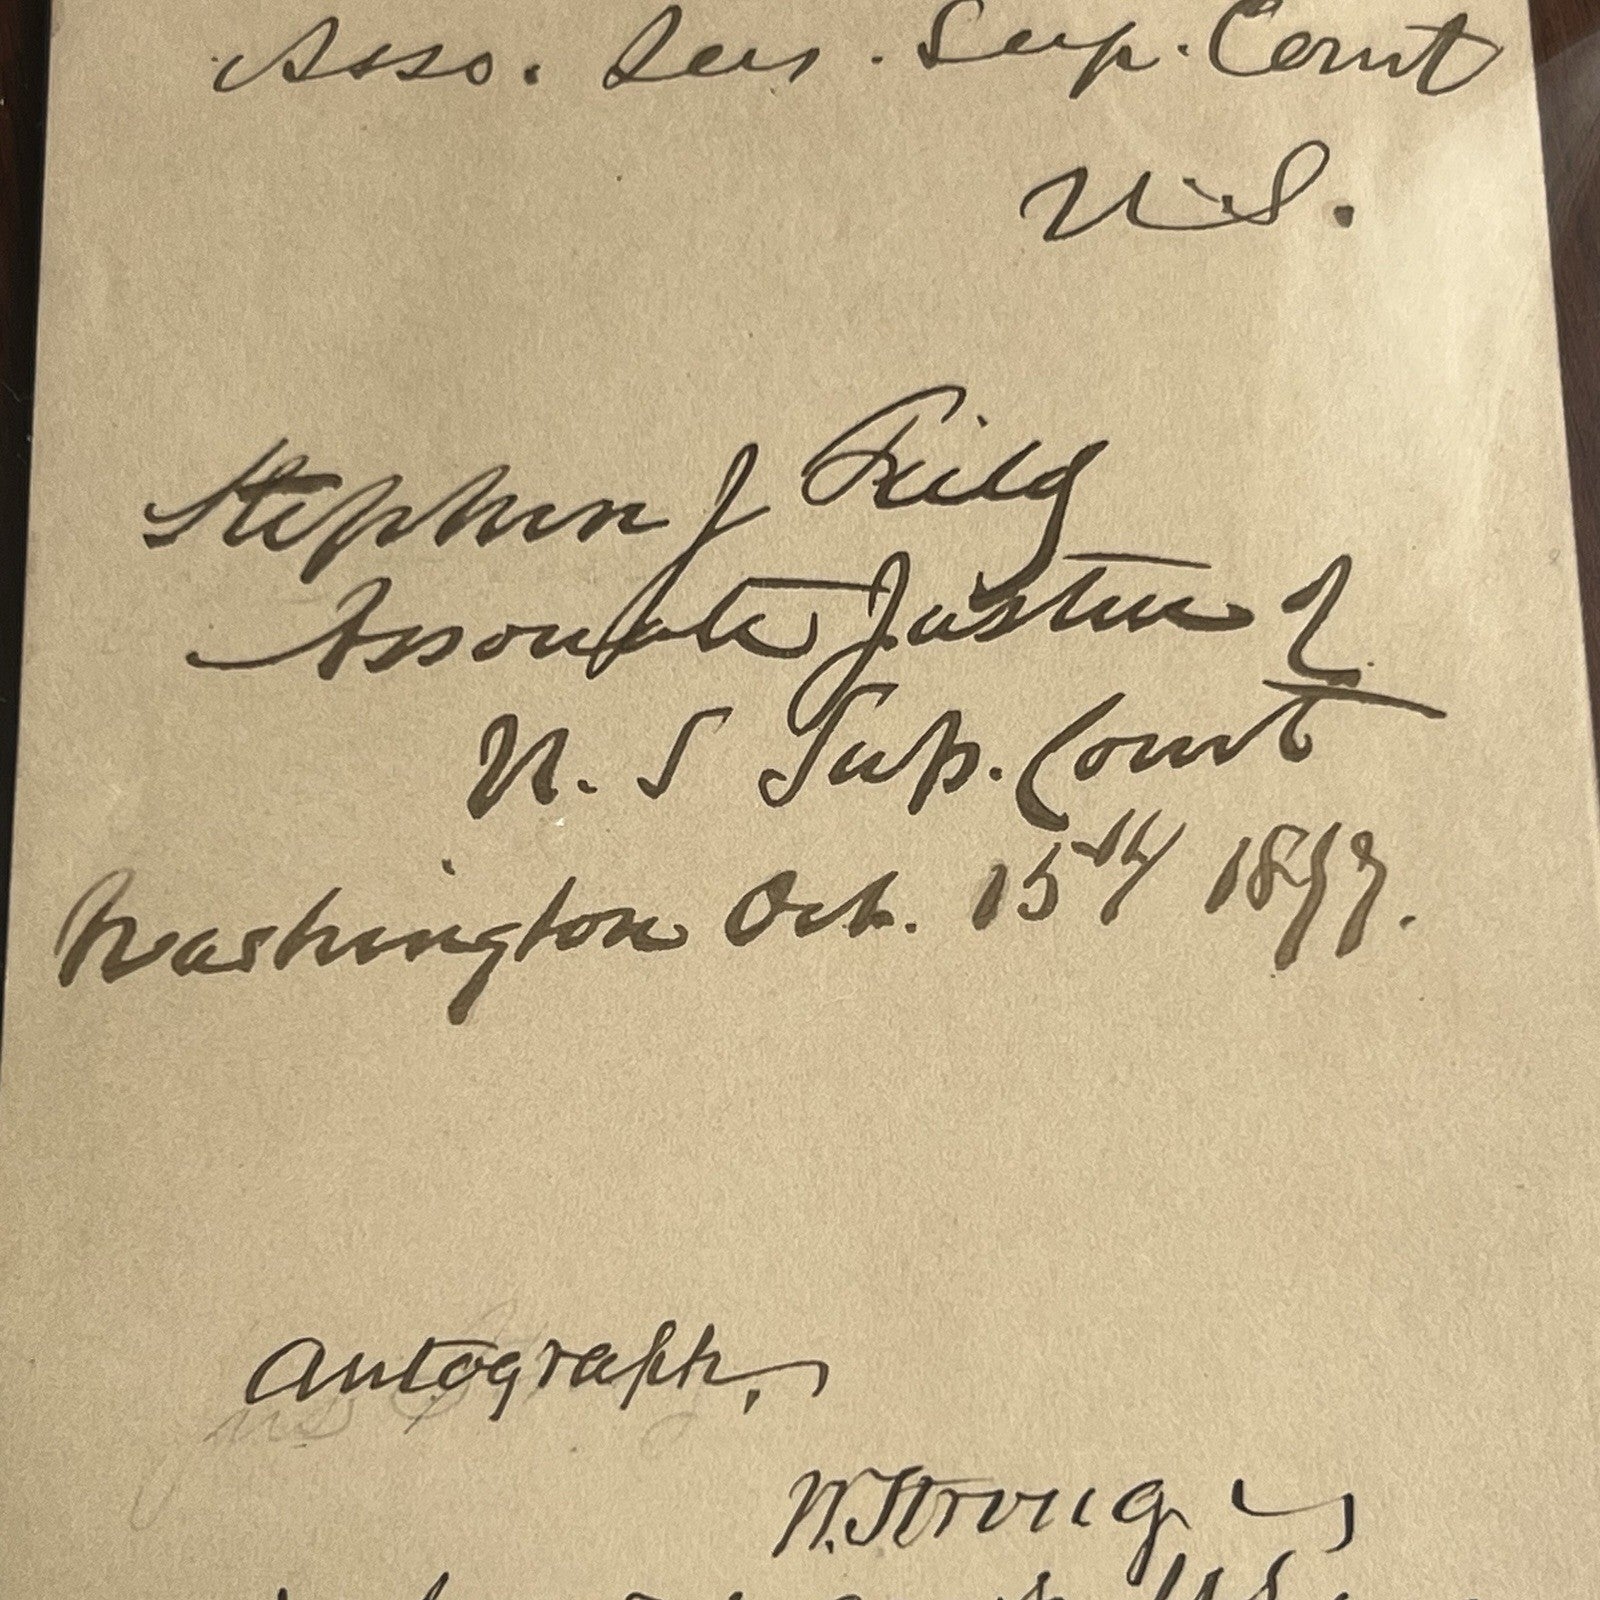 Asso. Jus. Sup. Court
U.S.
Stephen J Field
Associate Justice of
U. S Sup. Court
Washington Oct. 15th 1877.
Autograph,
W. Strong